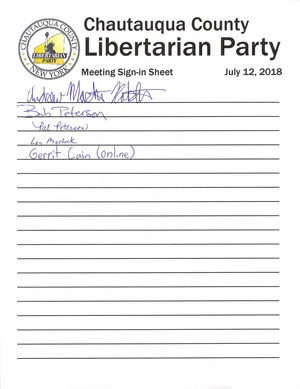 CHAUTAUQUA COUNTY
LIBERTARIAN
PARTY
NEW YORK
Chautauqua County
Libertarian Party
Meeting Sign-in Sheet July 12, 2018
Andrew Martin
Bob Peterson
Pat Peterson
Len
Gerrit Cain (online)